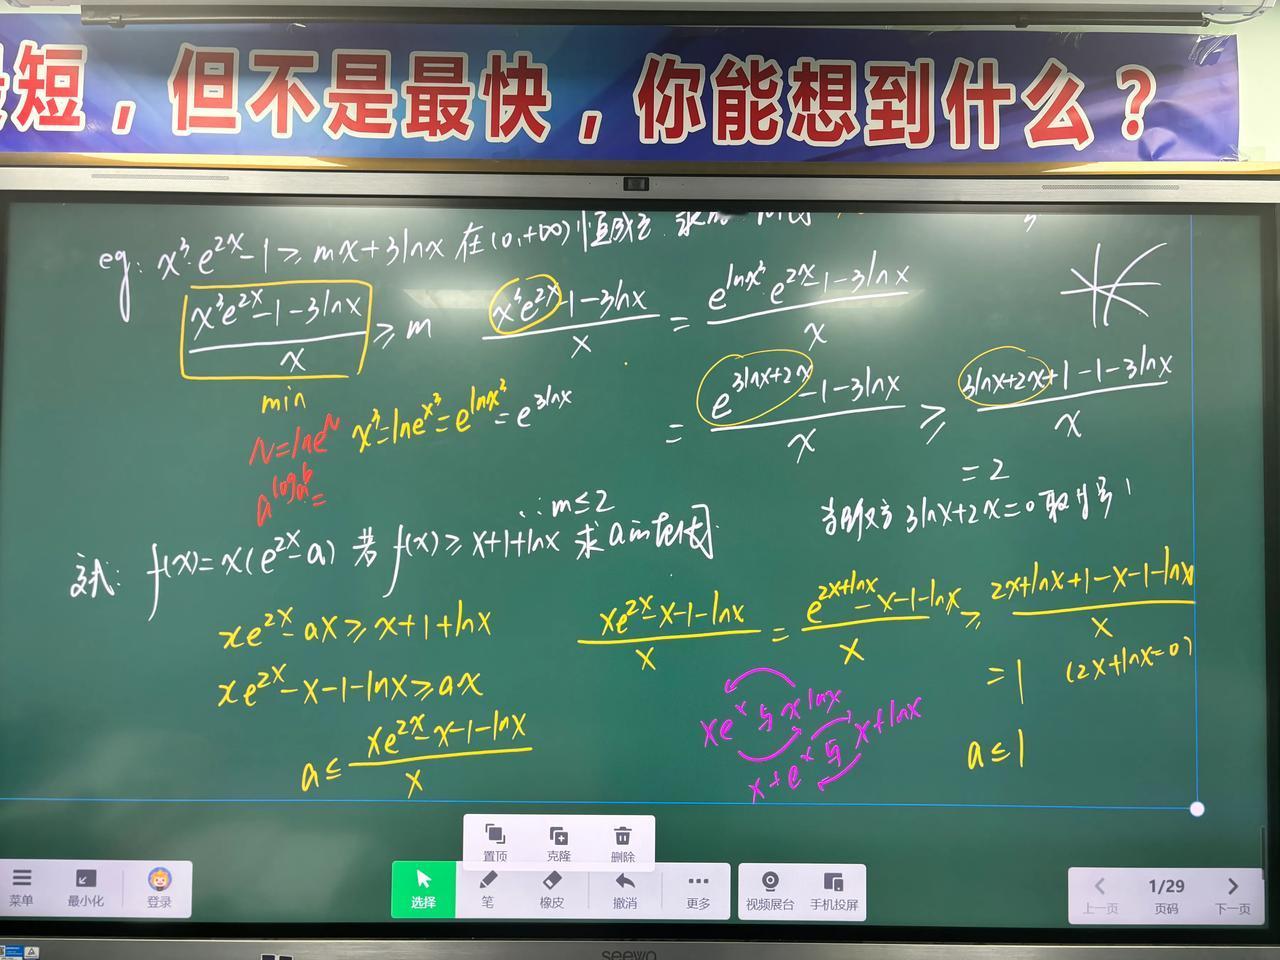 短，但不是最快，你能想到什么？
eg: x³·e^{2x}-1≥mx+3lnx 在(0,+∞)恒成立
\frac{x³e^{2x}-1-3lnx}{x}≥m
min
\frac{x³e^{2x}-1-3lnx}{x} = \frac{e^{lnx³}·e^{2x}-1-3lnx}{x}
= \frac{e^{3lnx+2x}-1-3lnx}{x} ≥ \frac{3lnx+2x+1-1-3lnx}{x}
= 2
N=lne^N
x³=lne^{x³}=e^{lnx³}=e^{3lnx}
a^{log_a b}=
∴m≤2
当 3lnx+2x=0取
f(x)=x(e^{2x}-a) 若 f(x)≥x+1+lnx 求a
xe^{2x}-ax≥x+1+lnx
xe^{2x}-x-1-lnx≥ax
a≤\frac{xe^{2x}-x-1-lnx}{x}
\frac{xe^{2x}-x-1-lnx}{x} = \frac{e^{2x+lnx}-x-1-lnx}{x} ≥ \frac{2x+lnx+1-x-1-lnx}{x}
=1 (2x+lnx=0)
a≤1
xe^x与xlnx
x+e^x与x+lnx
置顶 克隆 删除
菜单 最小化 登录
选择 笔 橡皮 撤消 更多
视频展台 手机投屏
上一页 1/29 页码 下一页
seewo